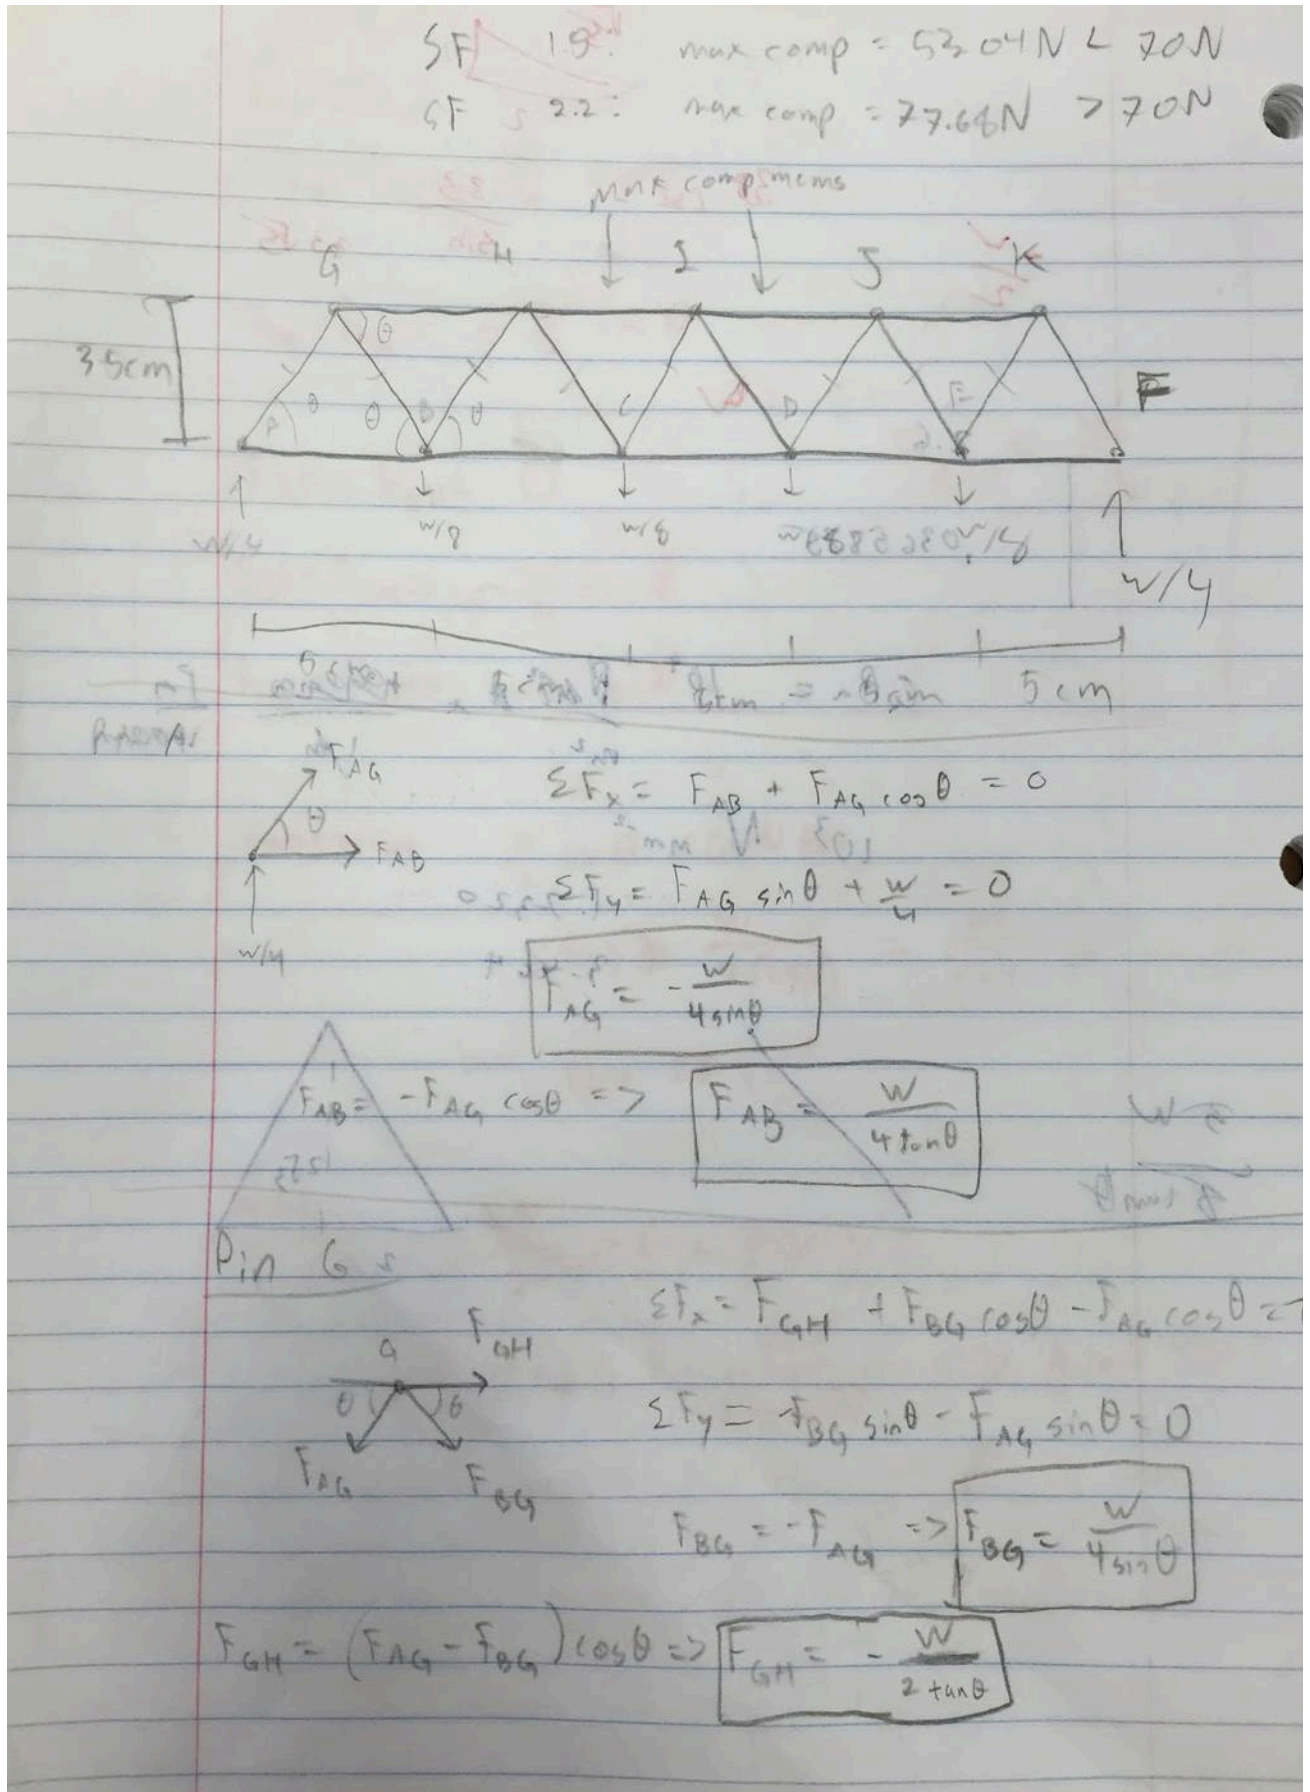 SF 1.5: max comp = 53.04N < 70N
SF 2.2: max comp = 77.68N > 70N
max comp mems
G H I J K
θ
35cm
A θ θ B θ C D E F
W/4 W/8 W/8 W/8
W/4
5 cm
F_AG
θ
F_AB
W/4
ΣF_x = F_AB + F_AG cosθ = 0
ΣF_y = F_AG sinθ + W/4 = 0
F_AG = - W/(4 sinθ)
F_AB = -F_AG cosθ => F_AB = W/(4 tanθ)
Pin G
ΣF_x = F_GH + F_BG cosθ - F_AG cosθ =
G F_GH
θ θ
F_AG F_BG
ΣF_y = -F_BG sinθ - F_AG sinθ = 0
F_BG = -F_AG => F_BG = W/(4 sinθ)
F_GH = (F_AG - F_BG) cosθ => F_GH = - W/(2 tanθ)